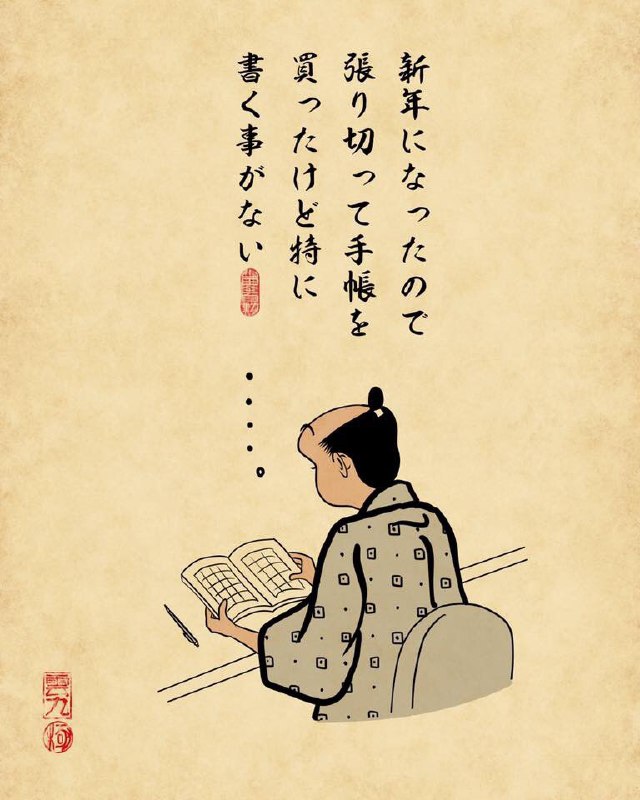 新年になったので
張り切って手帳を
買ったけど特に
書く事がない
・・・・。